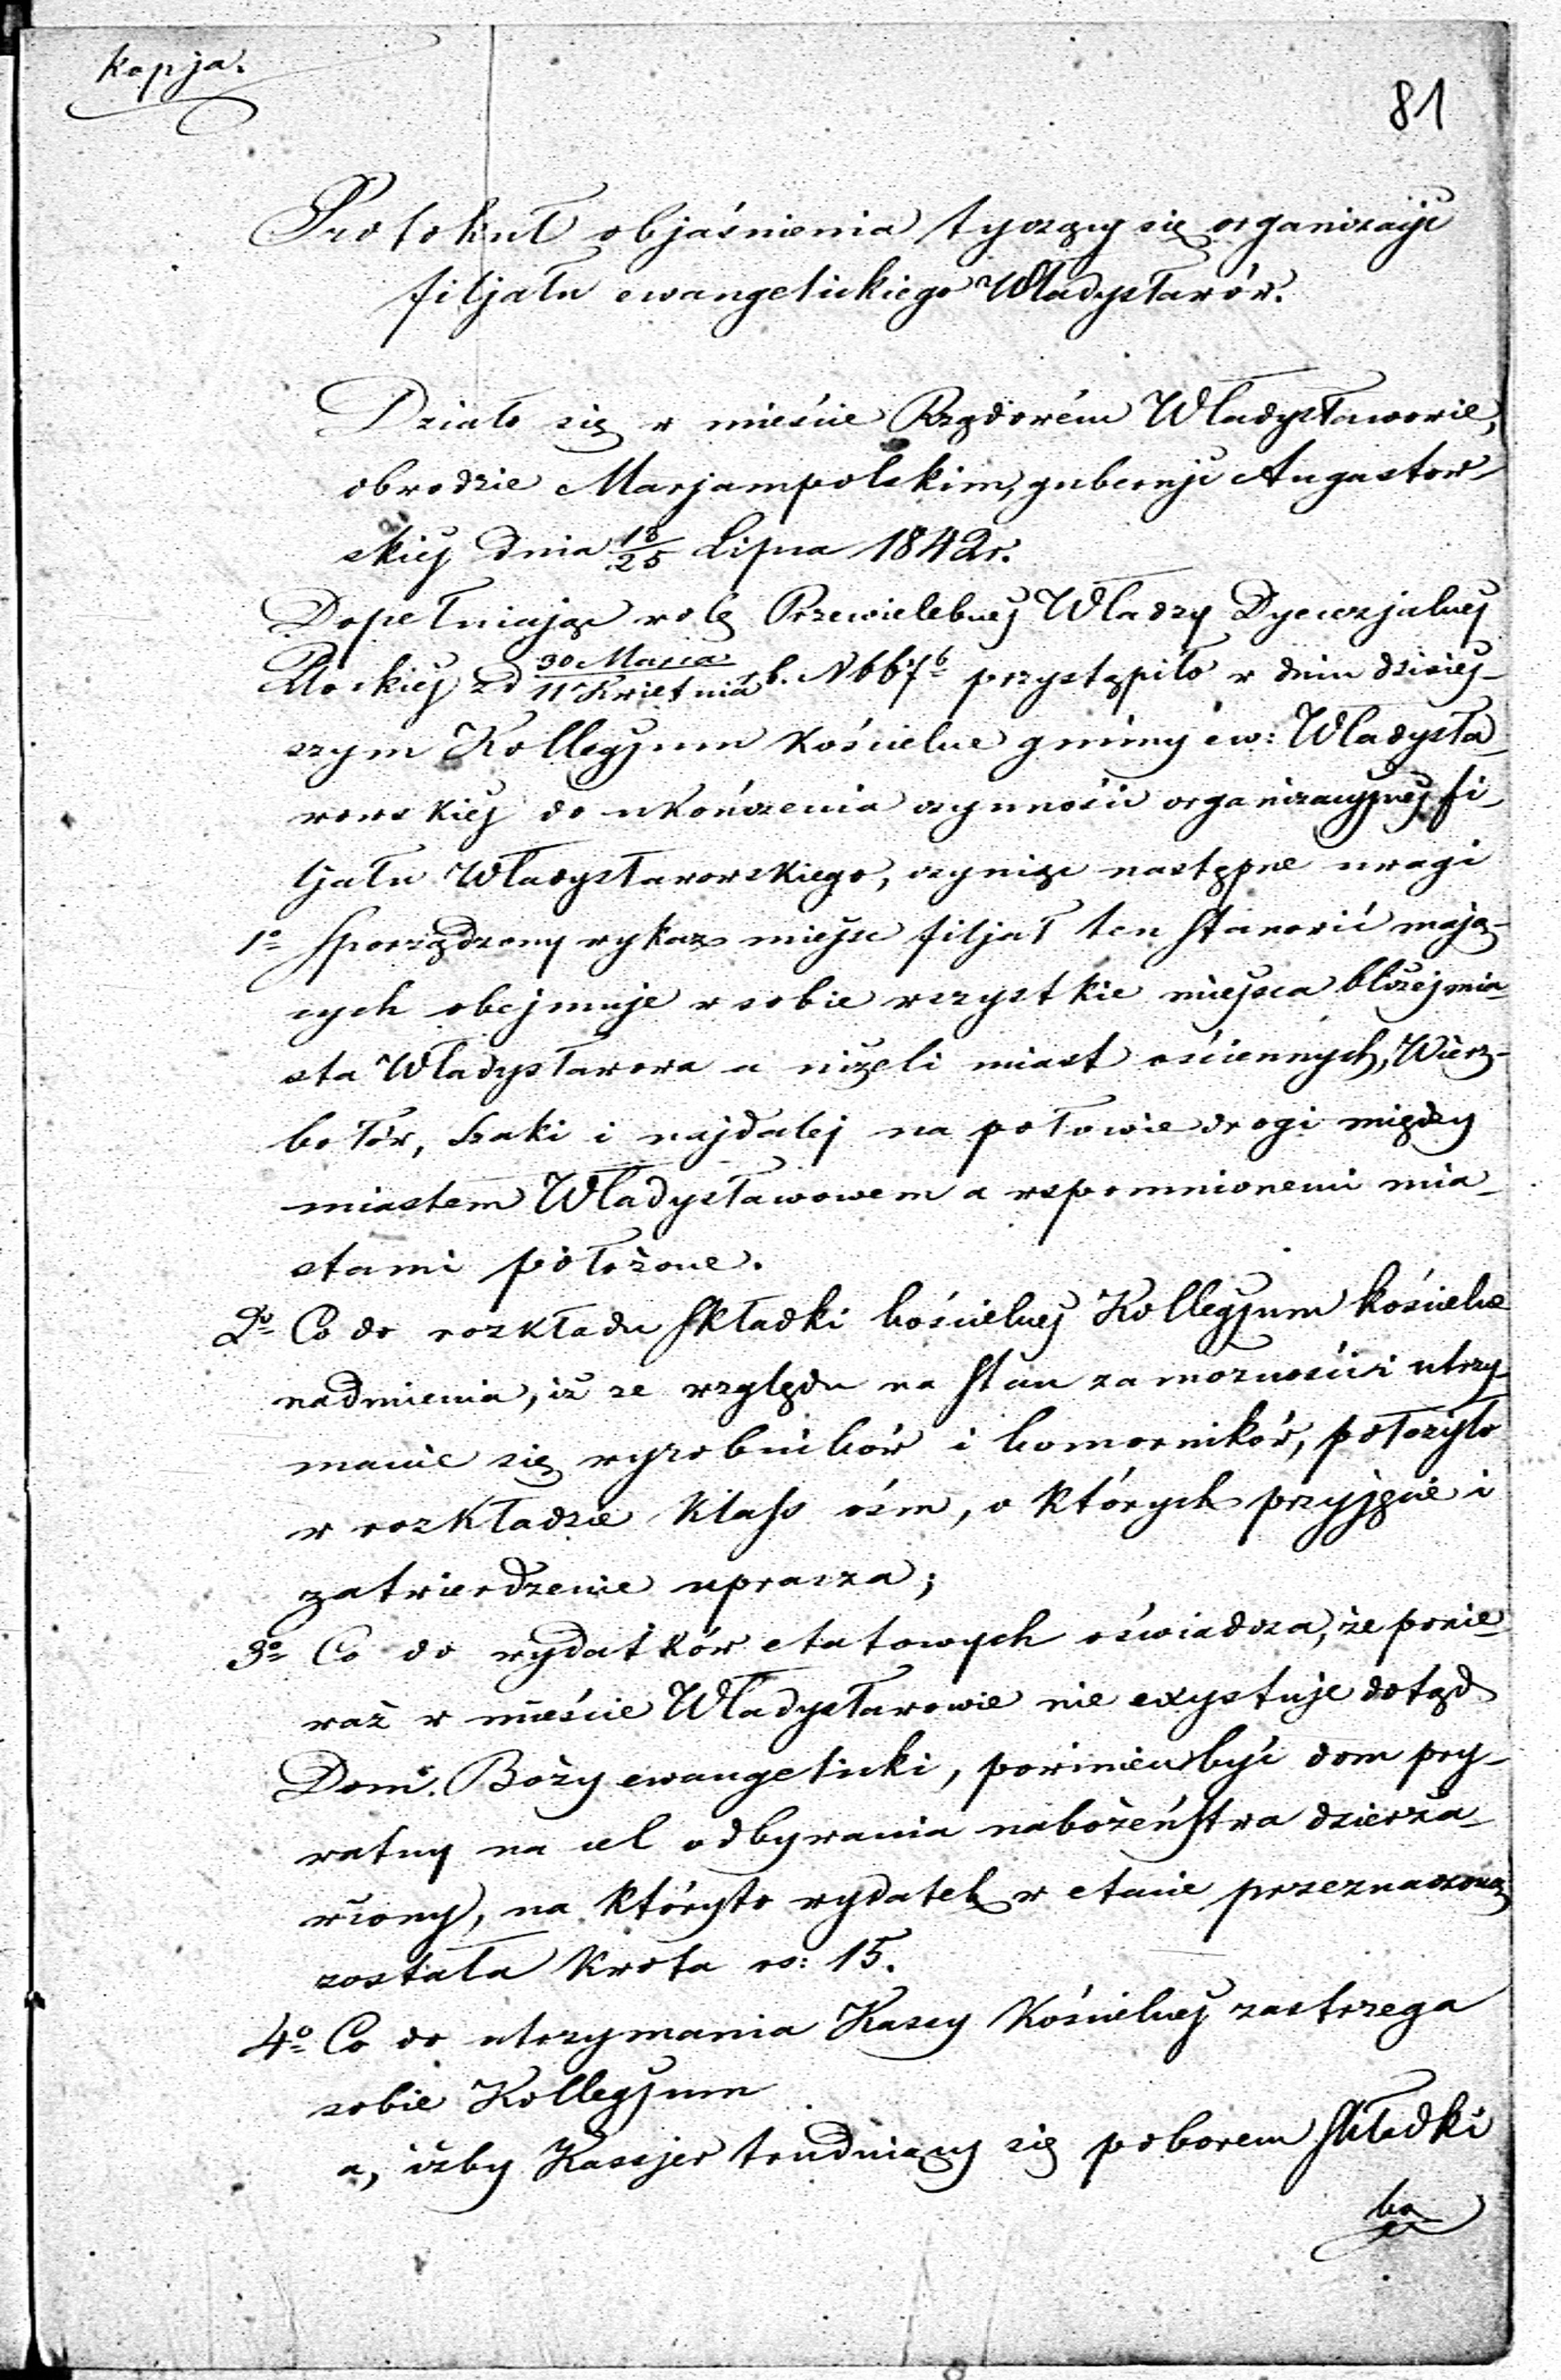 Kopja.
81
Protokuł objaśnienia tyczący się organizacji
filjału ewangelickiego Władysławów.
Działo się w mieście Rządowém Władysławowie,
obwodzie Marjampolskim, gubernji Augustow-
skiej dnia 13/25 Lipca 1842 r.
Dopełniając wolę Przewielebnej Władzy Dyecezjalnej
Płockiej zd 30 Marca/11 Kwietnia r. b. N 667 przystąpiło w dniu dzisiej-
szym Kollegjum Kościelne gminy ew: Władysła-
wowskiej do ukończenia czynności organizacyjnej fi-
ljału Władysławowskiego, czyniąc następne uwagi
1º Sporządzony wykaz miejsc filjał ten stanowić mają-
cych obejmuje w sobie wszystkie miejsca bliżej mia-
sta Władysławowa a niżeli miast ościennych, Wierz-
bołów, Szaki i najdalej na połowie drogi między
miastem Władysławowem a wspomnionemi mia-
stami położone.
2º Co do rozkładu składki kościelnej Kollegjum kościelne
nadmienia, iż ze względu na stan zamożności i utrzy-
manie się wyrobników i komorników, położyło
w rozkładzie klass ośm, o których przyjęcie i
zatwierdzenie uprasza;
3º Co do wydatków etatowych oświadcza, że ponie-
waż w mieście Władysławowie nie exystuje dotąd
Dom Boży ewangelicki, powinien być dom pry-
watny na cel odbywania nabożeństwa dzierża-
wiony, na któryto wydatek w etacie przeznaczoną
została kwota rs: 15.
4º Co do utrzymania Kassy Kościelnej zastrzega
sobie Kollegjum
a, iżby Kassjer trudniący się poborem składki